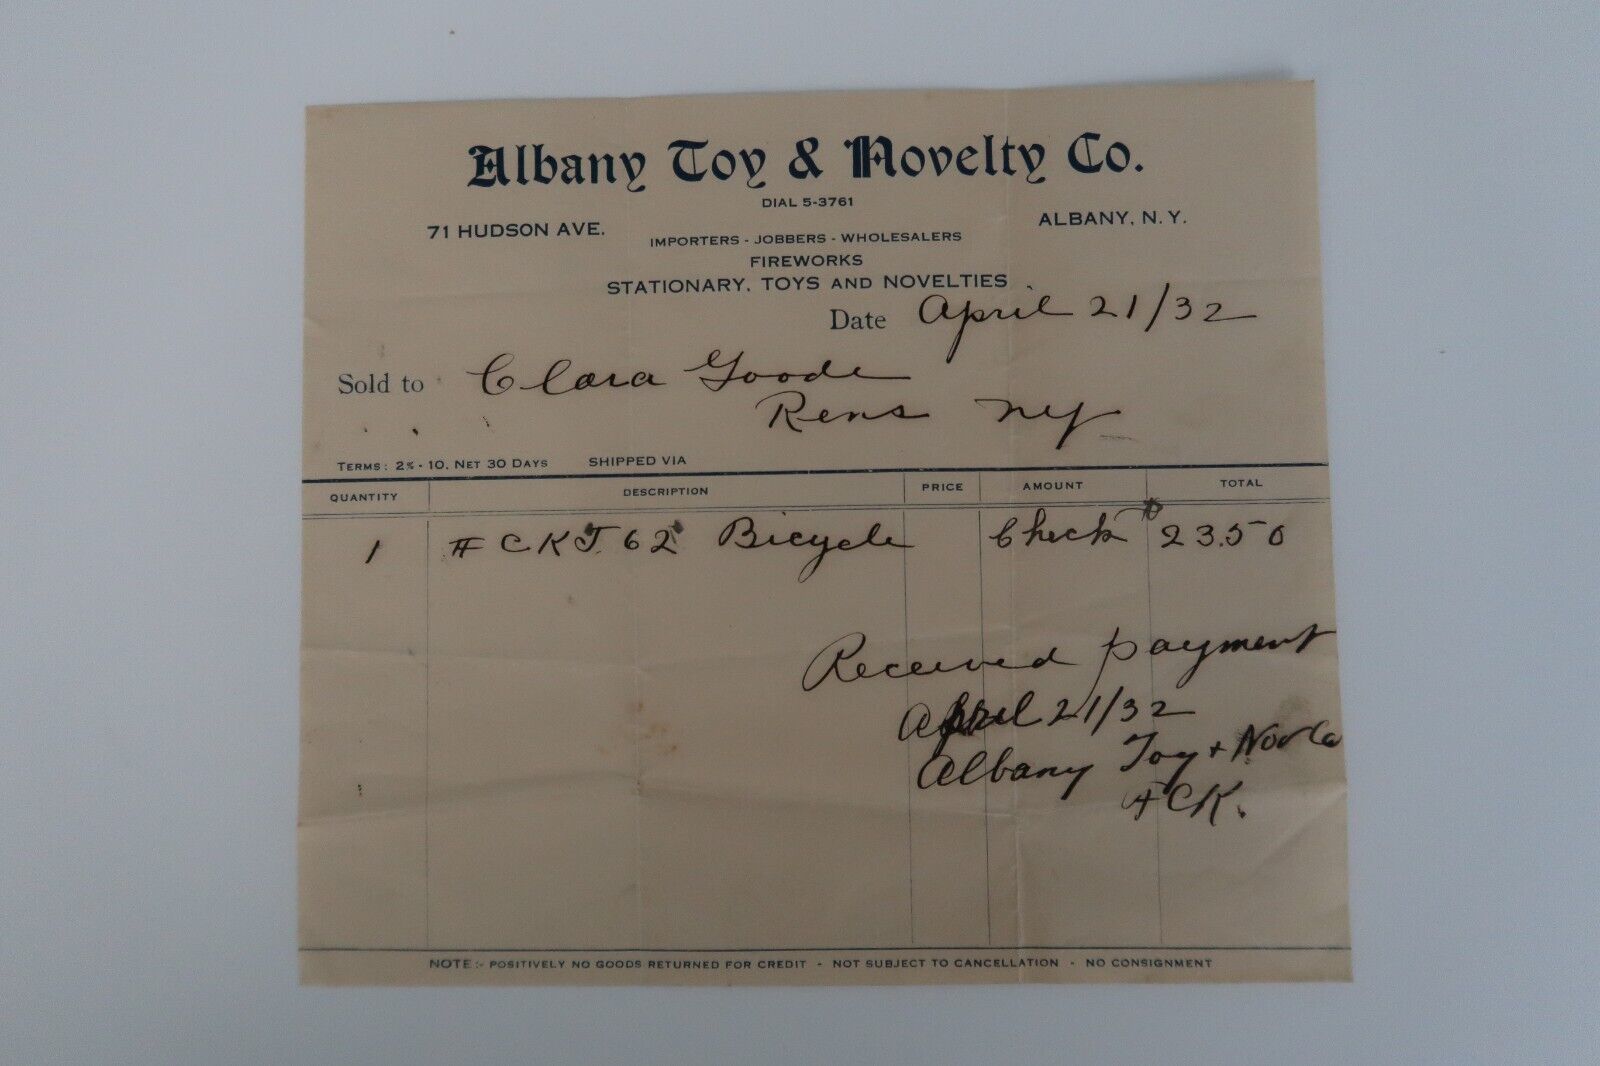 Albany Toy & Novelty Co.
DIAL 5-3761
71 HUDSON AVE. ALBANY, N. Y.
IMPORTERS - JOBBERS - WHOLESALERS
FIREWORKS
STATIONARY, TOYS AND NOVELTIES
Date April 21/32
Sold to Clara Goode
Rens NY
TERMS: 2% - 10, NET 30 DAYS SHIPPED VIA
QUANTITY DESCRIPTION PRICE AMOUNT TOTAL
1 # CKJ 62 Bicycle Check $ 23.50
Received payment
April 21/32
Albany Toy + Nov Co
CK.
NOTE:- POSITIVELY NO GOODS RETURNED FOR CREDIT - NOT SUBJECT TO CANCELLATION - NO CONSIGNMENT